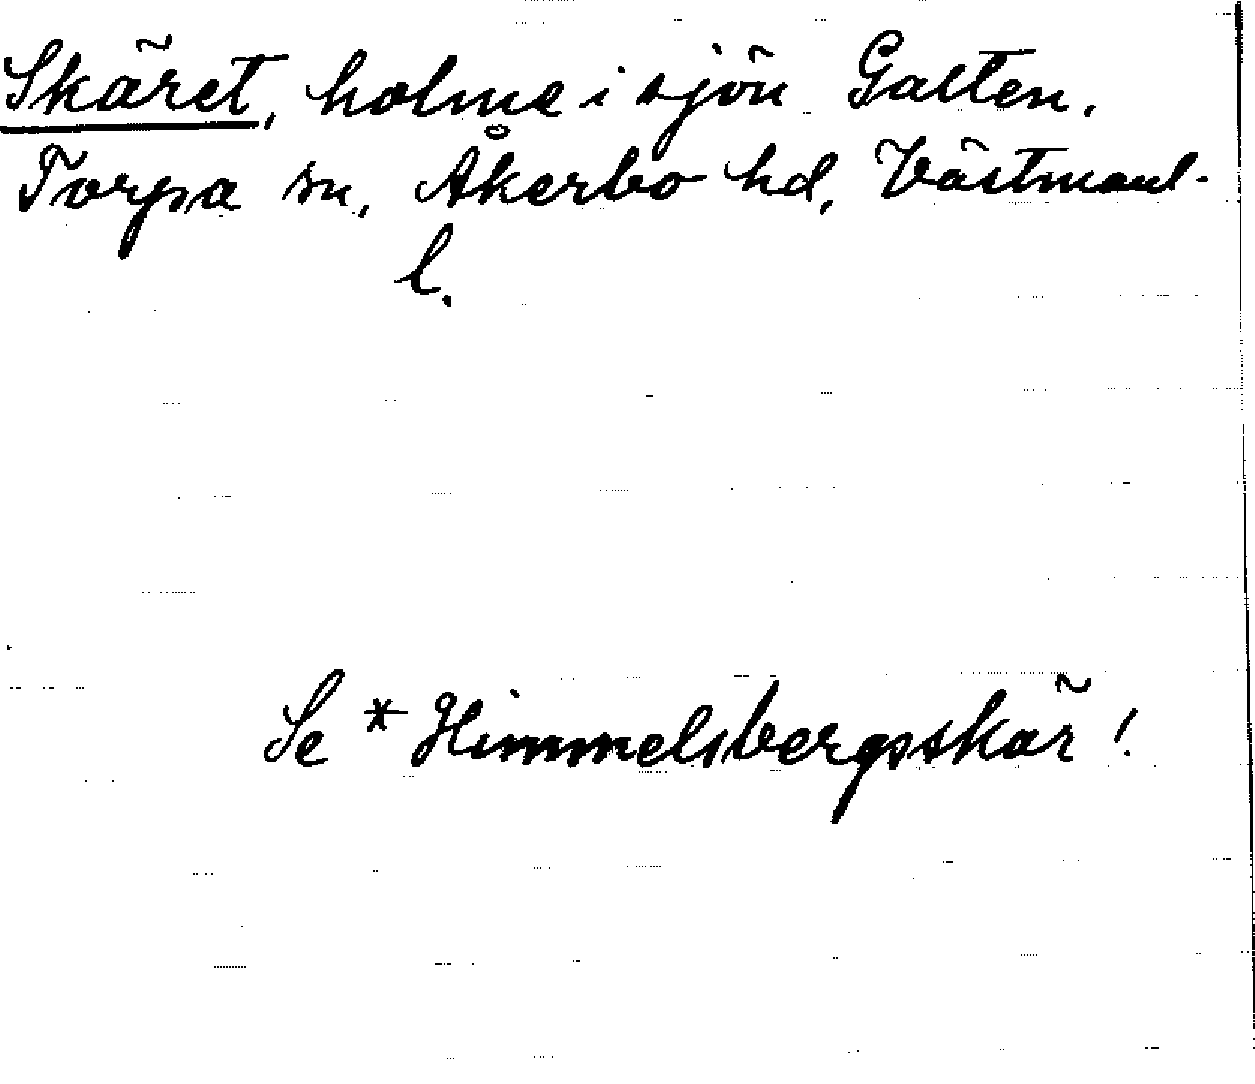 Skäret, holme i sjön Galten.
Torpa sn, Åkerbo hd, Västmanl.
l.
Se * Himmelsbergsskär !